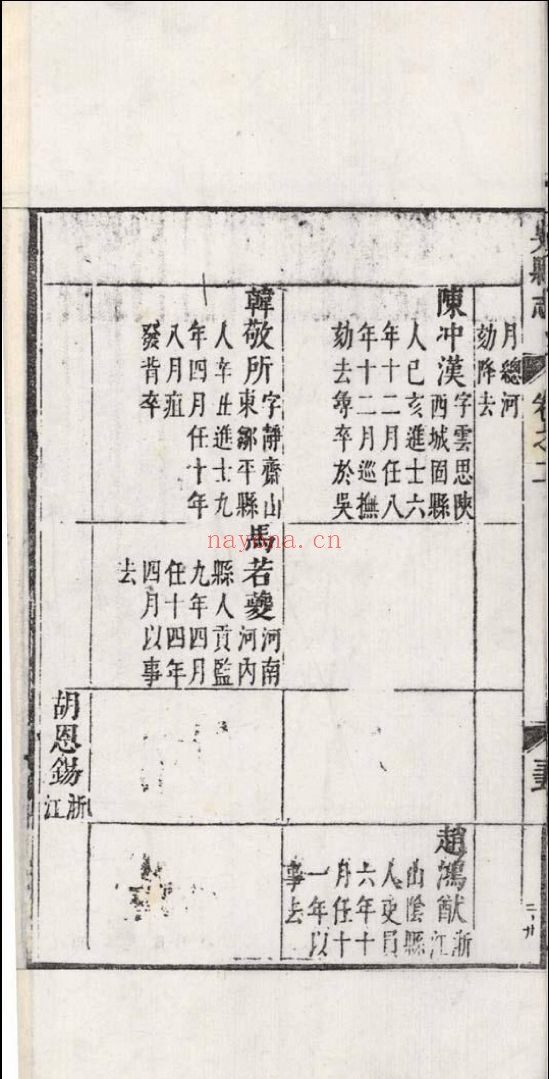 吳縣志
卷之二
月總河
劾降去
陳冲漢
字雲思陝
西城固縣
人己亥進士六
年十二月任八
年十二月巡撫
劾去尋卒於吳
趙鴻猷
浙江
山陰縣
人吏員
六年十
月任十
一年以
事去
韓敬所
字靜齋山
東鄒平縣
人辛丑進士九
年四月任十年
八月疽
發背卒
馬若夔
河南
河內
縣人貢監
九年四月
任十四年
四月以事
去
胡恩錫
浙江
nayona.cn